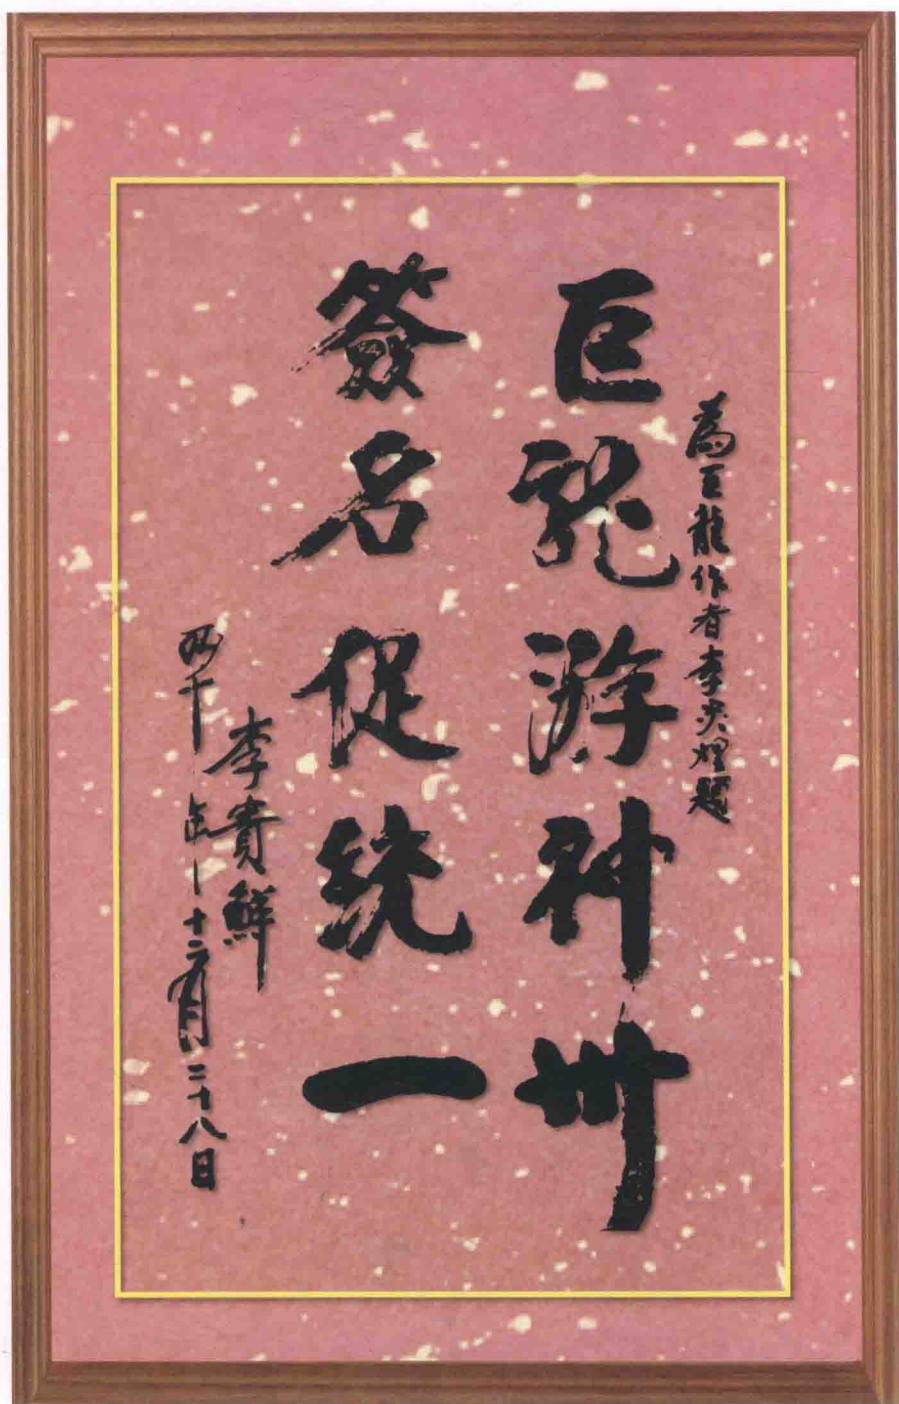 為巨龍作者李題
巨龍游神州
簽名促統一
李貴鮮
两千年十二月二十八日